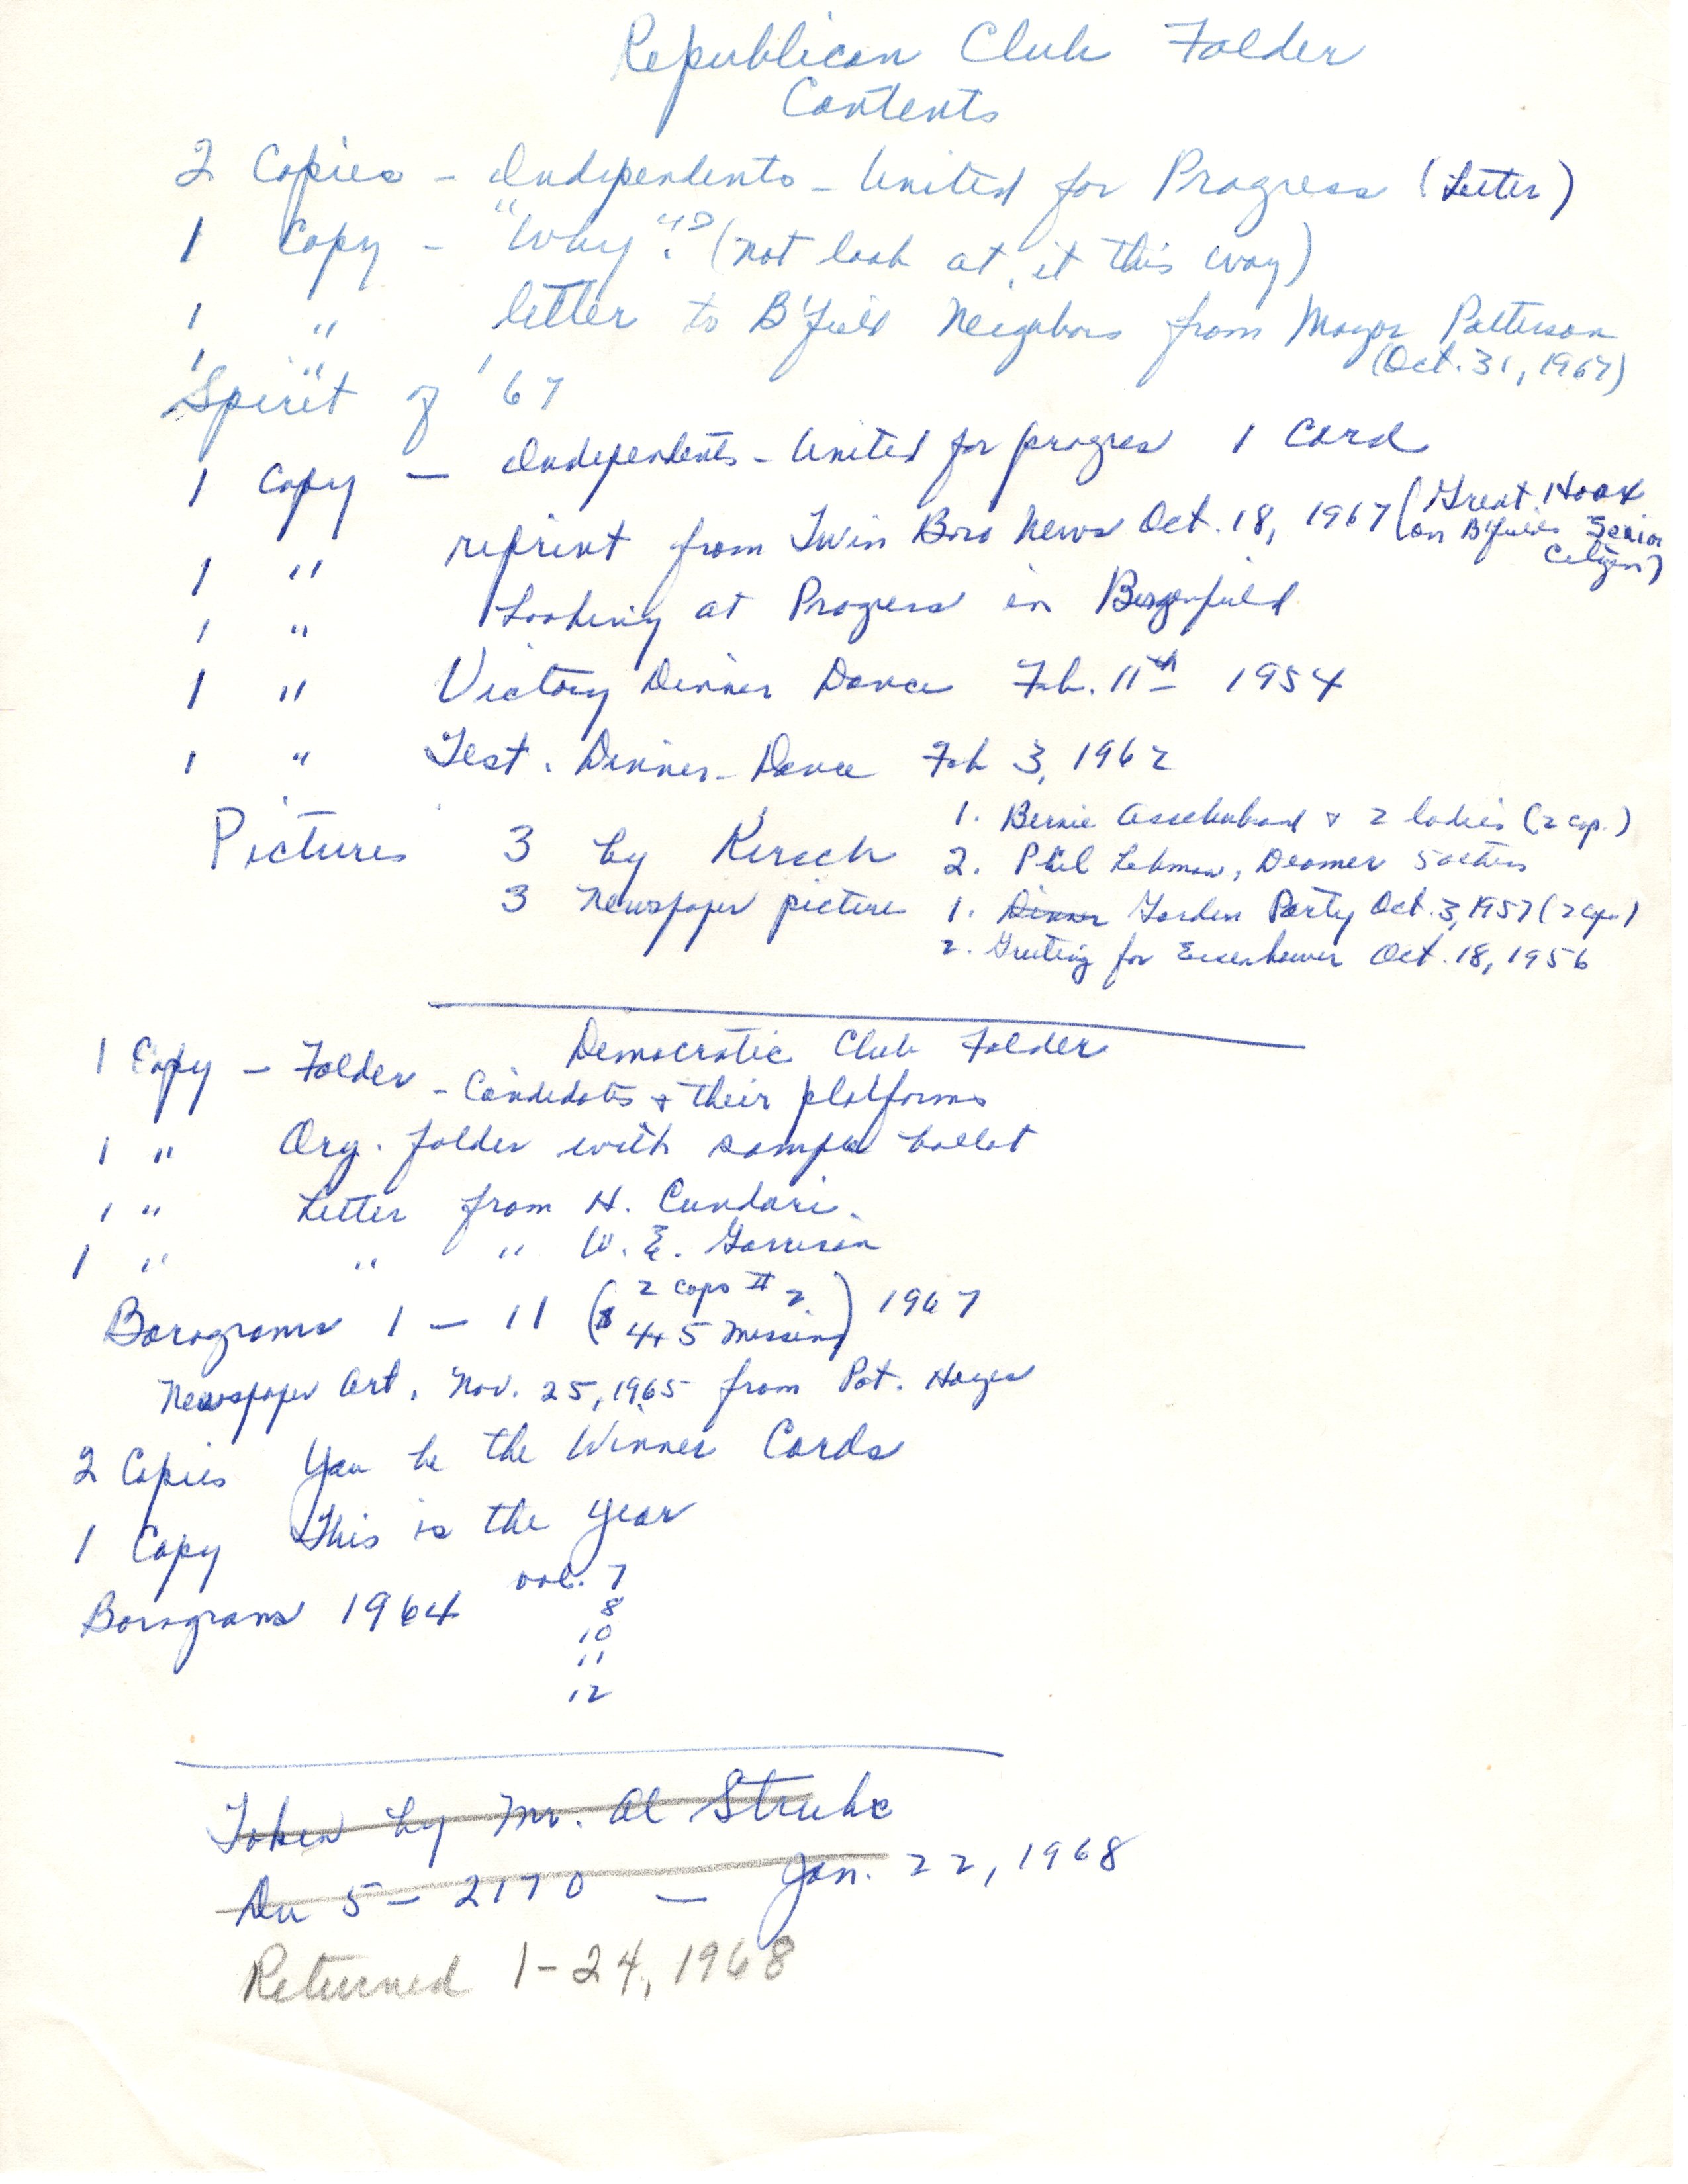 Republican Club Folder
Contents
2 Copies - Independents - United for Progress (Letter)
1 Copy - "Why"? (not look at it this way)
1 " letter to B'field Neighbors from Mayor Patterson
(Oct. 31, 1967)
1 "
Spirit of '67
1 Copy - Independents - United for progress 1 Card
1 " reprint from Twin Boro News Oct. 18, 1967 (Great Hoax
on B'field's Senior
Citizen)
1 " Looking at Progress in Bergenfield
1 " Victory Dinner Dance Feb. 11th 1954
1 " Test. Dinner-Dance Feb 3, 1962
Pictures 3 by Kersch 1. Bernie & 2 ladies (2 cop.)
2. Phil Lehman, Deamer 5 others
3 Newspaper picture 1. Dinner Garden Party Oct. 3, 1957 (2 cop.)
2. Greeting for Eisenhower Oct. 18, 1956
Democratic Club Folder
1 Copy - Folder - Candidates & their platforms
1 " Org. folder with sample ballot
1 " Letter from H. Cundari.
1 " " " W. E. Garrison
Borograms 1 - 11 (2 cops # 2
4+5 missing) 1967
Newspaper Art. Nov. 25, 1965 from Pat. Hayes
2 Copies You be the Winner Cards
1 Copy This is the Year
Borograms 1964 vol. 7
8
10
11
12
Taken by Mr. Al Strube
Du 5-2170 - Jan. 22, 1968
Returned 1-24, 1968